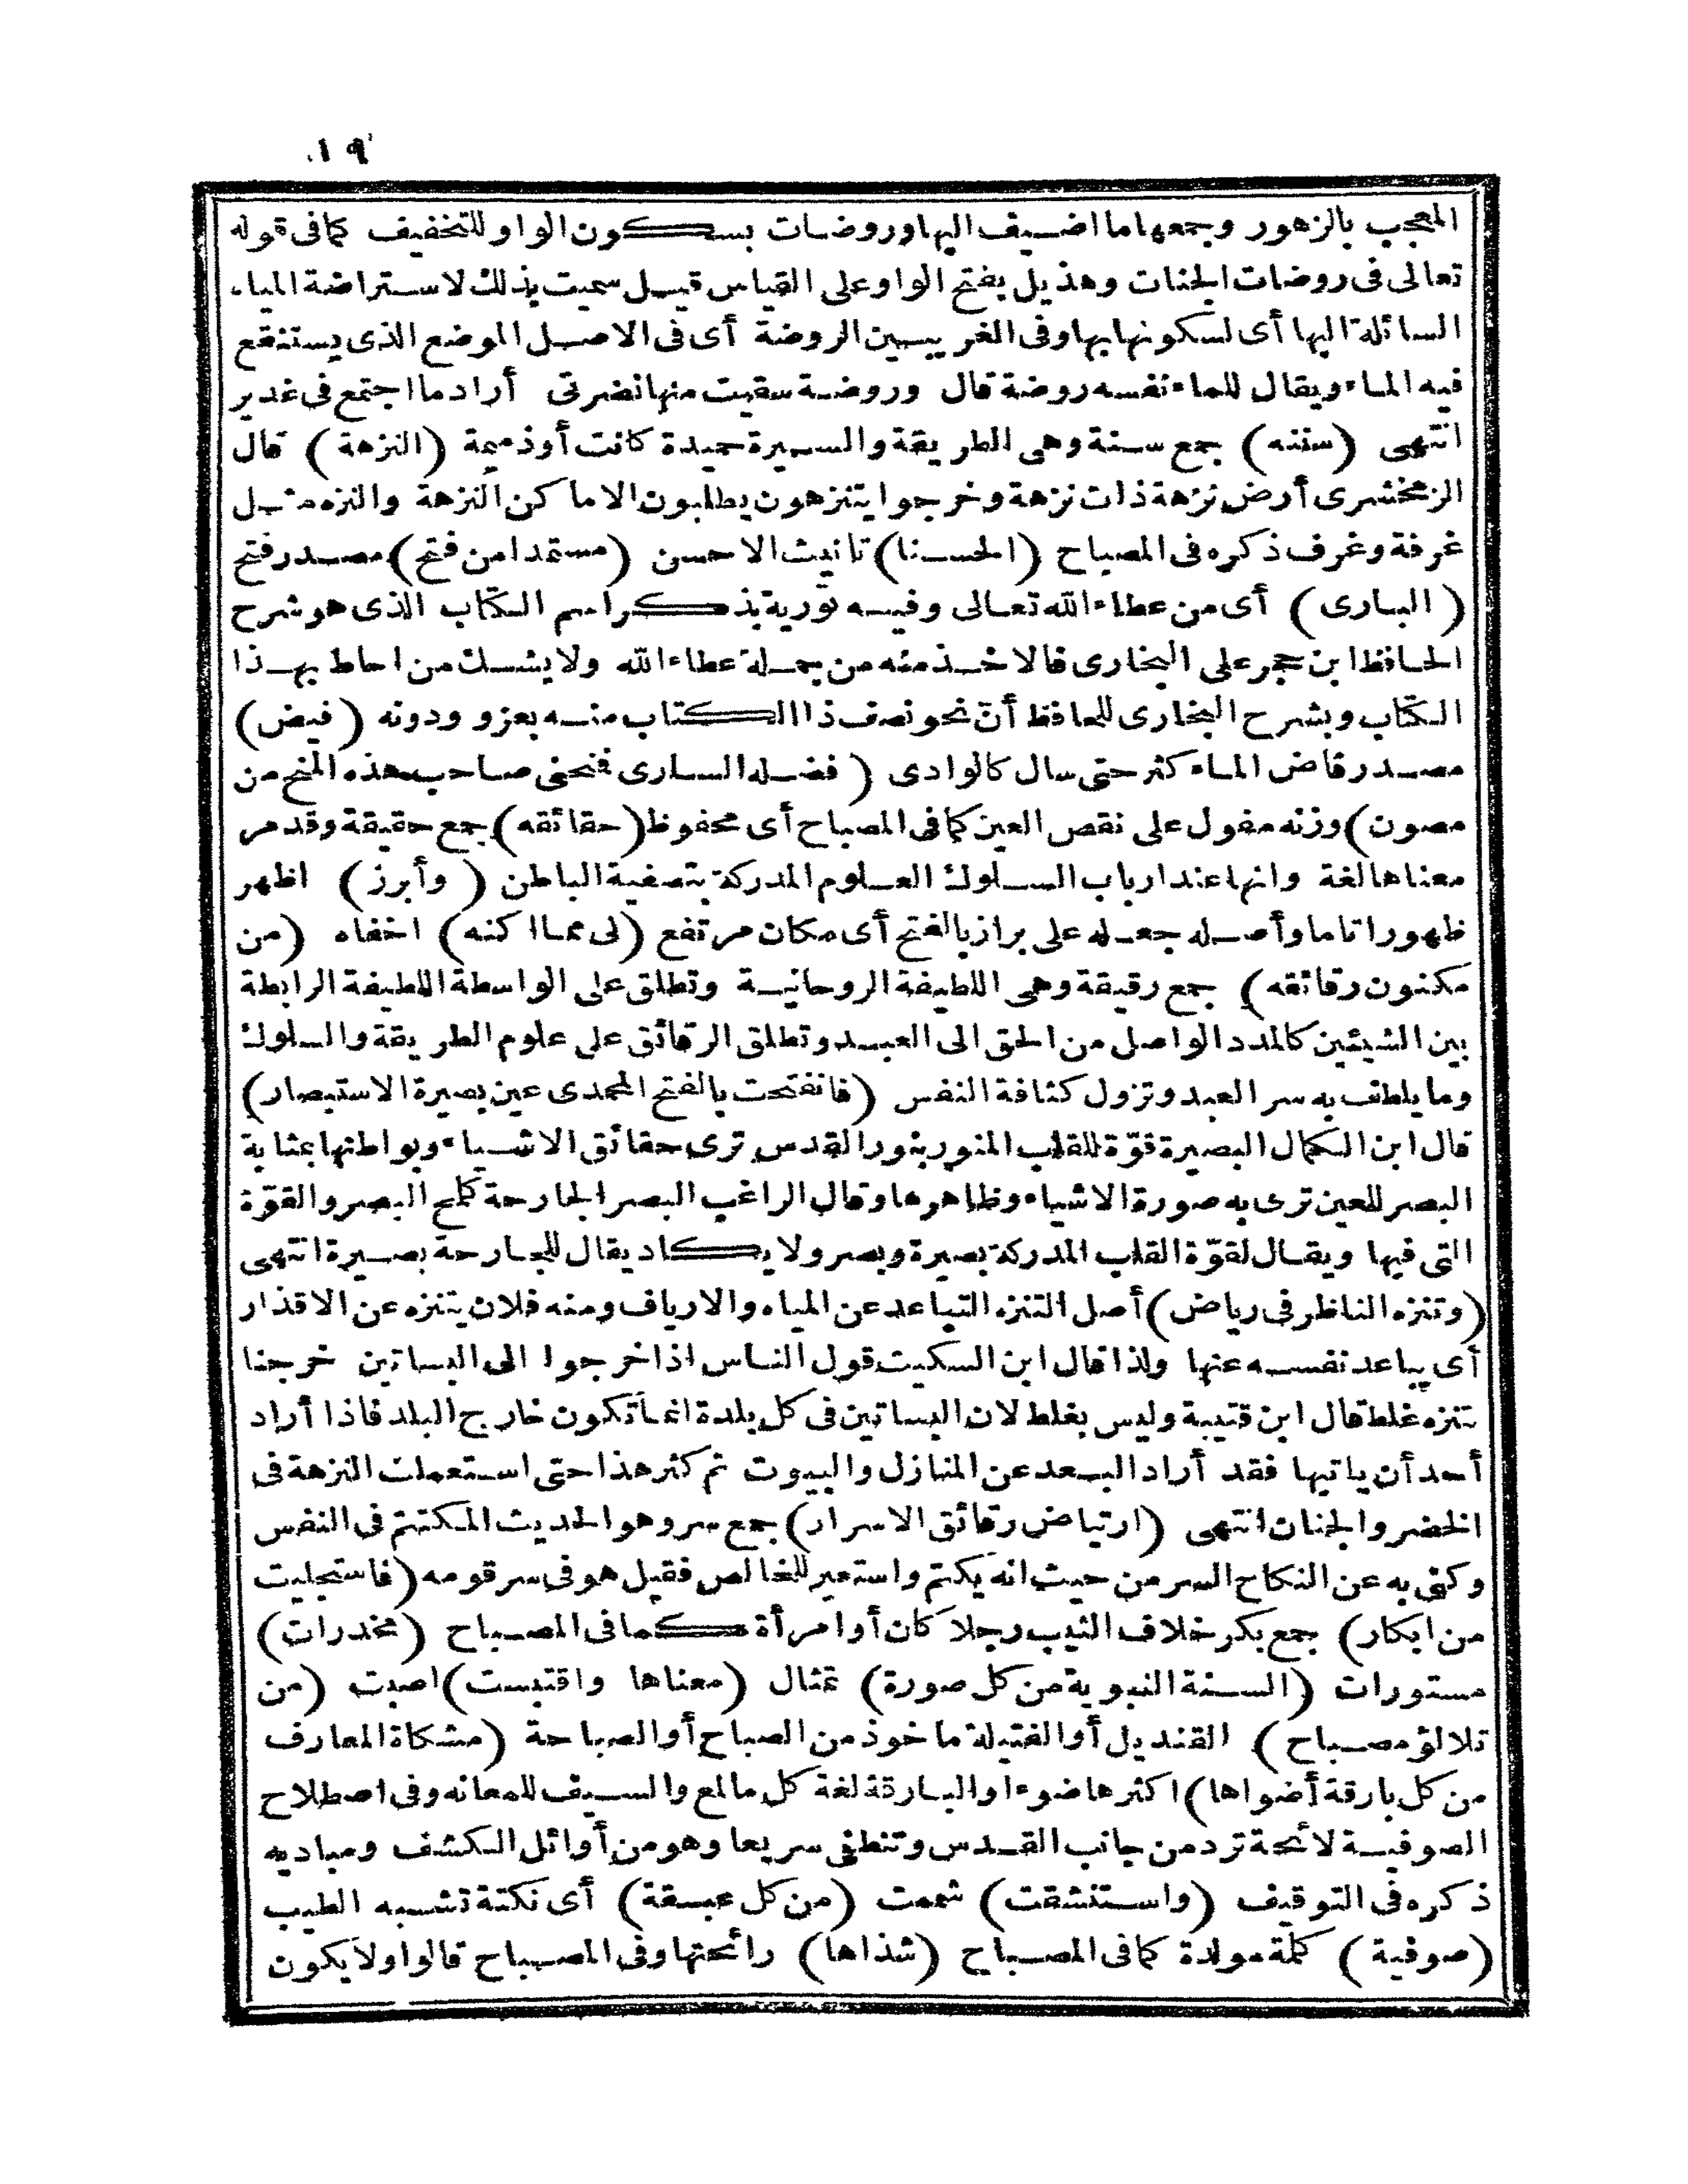 ١٩
المعجب بالزهور وجمعها ما اضيف اليها وروضات بسكون الواو للتخفيف كما فى قوله
تعالى فى روضات الجنات وهذيل يفتح الواو على القياس قيل سميت بذلك لاستراضة المياه
السائلة اليها أى لسكونها بها وفى الغريبين الروضة أى فى الاصل الموضع الذى يستنقع
فيه الماء ويقال للماء نفسه روضة قال وروضة سقيت منها نضرتى أراد ما اجتمع فى غدير
انتهى (سننه) جمع سنة وهى الطريقة والسيرة حميدة كانت أو ذميمة (النزهة) قال
الزمخشرى أرض نزهة ذات نزهة وخرجوا يتنزهون يطلبون الاماكن النزهة والنزه مثل
غرفة وغرف ذكره فى المصباح (الحسنا) تانيث الاحسن (مستمدا من فتح) مصدر فتح
(البارى) أى من عطاء الله تعالى وفيه تورية بذكر اسم الكتاب الذى هو شرح
الحافظ ابن حجر على البخارى فالاخذ منه من جملة عطاء الله ولا يشك من احاط بهذا
الكتاب وبشرح البخارى للحافظ أنّ نحو نصف ذا الكتاب منه بعزو ودونه (فيض)
مصدر فاض الماء كثر حتى سال كالوادى (فضله السارى فنحنى صاحب هذه المنح من
مصون) وزنه مفول على نقص العين كما فى المصباح أى محفوظ (حقائقه) جمع حقيقة وقد مر
معناها لغة وانها عند ارباب السلوك العلوم المدركة بتصفية الباطن (وأبرز) اظهر
ظهورا تاما وأصله جعله على براز بالفتح أى مكان مرتفع (لى مما اكنه) اخفاه (من
مكنون رقائقه) جمع رقيقة وهى اللطيفة الروحانية وتطلق على الواسطة اللطيفة الرابطة
بين الشيئين كالمدد الواصل من الحق الى العبد وتطلق الرقائق على علوم الطريقة والسلوك
وما يلطف به سر العبد وتزول كثافة النفس (فانفتحت بالفتح المحمدى عين بصيرة الاستبصار)
قال ابن الكمال البصيرة قوّة للقلب المنور بنور القدس ترى حقائق الاشياء وبواطنها بمثابة
البصر للعين ترى به صورة الاشياء وظاهرها وقال الراغب البصر الجارحة كلمح البصر والقوّة
التى فيها ويقال لقوّة القلب المدركة بصيرة وبصر ولا يكاد يقال للجارحة بصيرة انتهى
(وتنزه الناظر فى رياض) أصل التنزه التباعد عن المياه والارياف ومنه فلان يتنزه عن الاقذار
أى يباعد نفسه عنها ولذا قال ابن السكيت قول الناس اذا خرجوا الى البساتين خرجنا
نتنزه غلط قال ابن قتيبة وليس بغلط لان البساتين فى كل بلدة انما تكون خارج البلد فاذا أراد
أحد أن ياتيها فقد أراد البعد عن المنازل والبيوت ثم كثر هذا حتى استعملت النزهة فى
الخضر والجنات انتهى (ارتياض رقائق الاسرار) جمع سر وهو الحديث المكتتم فى النفس
وكنى به عن النكاح السر من حيث انه يكتم واستعير للخالص فقيل هو فى سر قومه (فاستجليت
من ابكار) جمع بكر خلاف الثيب رجلا كان أو امرأة كما فى المصباح (مخدرات)
مستورات (السنة النبوية من كل صورة) تمثال (معناها واقتبست) اصبت (من
تلالؤ مصباح) القنديل أو الفتيلة ماخوذ من الصباح أو الصباحة (مشكاة المعارف
من كل بارقة أضواها) اكثرها ضوءا والبارقة لغة كل ما لمع والسيف للمعانه وفى اصطلاح
الصوفية لائحة ترد من جانب القدس وتنطفى سريعا وهو من أوائل الكشف ومباديه
ذكره فى التوقيف (واستنشقت) شممت (من كل عبقة) أى نكتة تشبه الطيب
(صوفية) كلمة مولدة كما فى المصباح (شذاها) رائحتها وفى المصباح قالوا ولا يكون